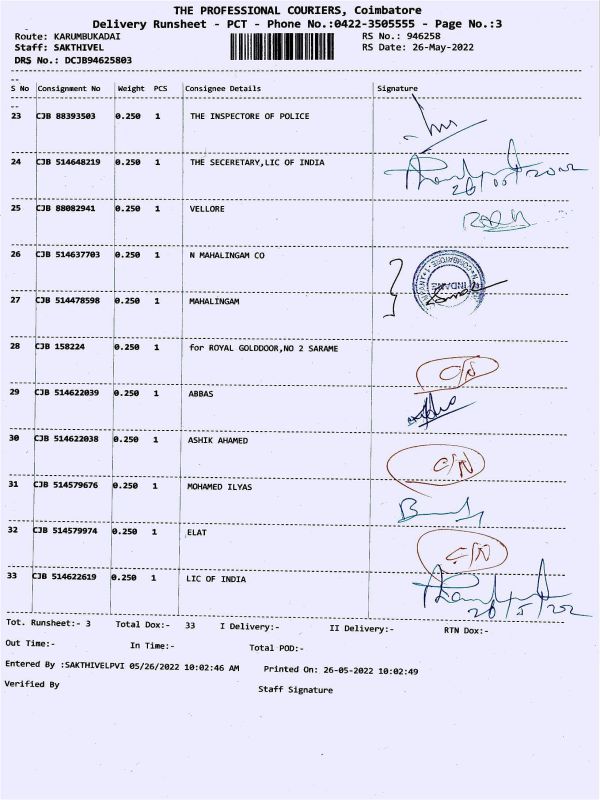 THE PROFESSIONAL COURIERS, Coimbatore
Delivery Runsheet - PCT - Phone No.:0422-3505555 - Page No.:3
Route: KARUMBUKADAI RS No.: 946258
Staff: SAKTHIVEL RS Date: 26-May-2022
DRS No.: DCJB94625803
S No Consignment No Weight PCS Consignee Details Signature
23 CJB 88393503 0.250 1 THE INSPECTORE OF POLICE
24 CJB 514648219 0.250 1 THE SECERETARY,LIC OF INDIA
25 CJB 88082941 0.250 1 VELLORE
26 CJB 514637703 0.250 1 N MAHALINGAM CO
27 CJB 514478598 0.250 1 MAHALINGAM
INDANE
28 CJB 158224 0.250 1 for ROYAL GOLDDOOR,NO 2 SARAME
C/N
29 CJB 514622039 0.250 1 ABBAS
30 CJB 514622038 0.250 1 ASHIK AHAMED
C/N
31 CJB 514579676 0.250 1 MOHAMED ILYAS
32 CJB 514579974 0.250 1 ELAT
C/N
33 CJB 514622619 0.250 1 LIC OF INDIA
Tot. Runsheet:- 3 Total Dox:- 33 I Delivery:- II Delivery:- RTN Dox:-
Out Time:- In Time:- Total POD:-
Entered By :SAKTHIVELPVI 05/26/2022 10:02:46 AM Printed On: 26-05-2022 10:02:49
Verified By Staff Signature